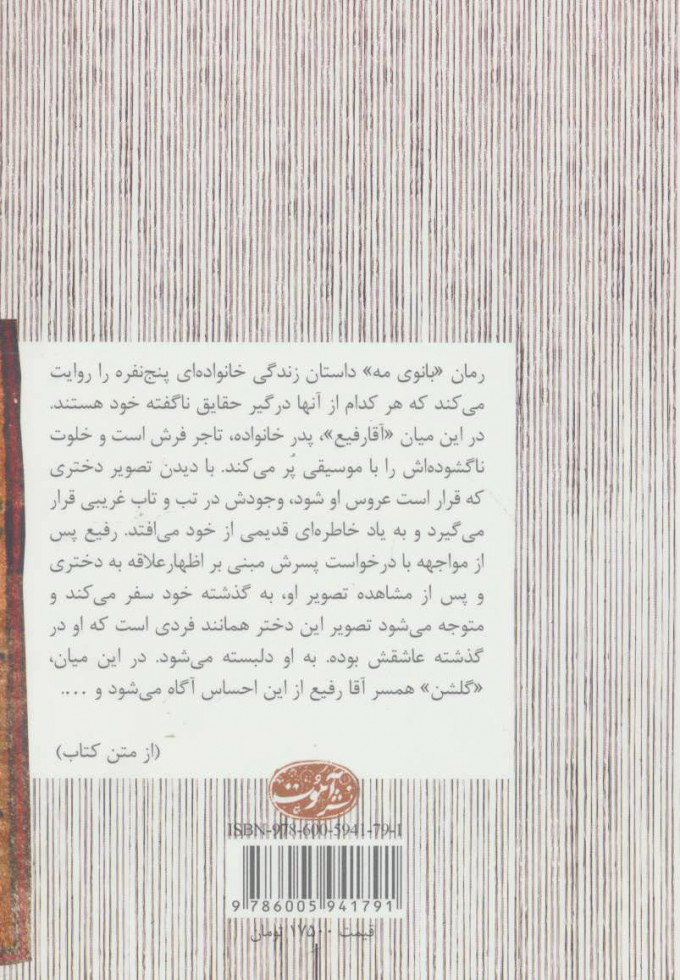 رمان «بانوی مه» داستان زندگی خانواده‌ای پنج‌نفره را روایت
می‌کند که هر کدام از آنها درگیر حقایق ناگفته خود هستند.
در این میان «آقارفیع»، پدر خانواده، تاجر فرش است و خلوت
ناگشوده‌اش را با موسیقی پُر می‌کند. با دیدن تصویر دختری
که قرار است عروس او شود، وجودش در تب و تاب غریبی قرار
می‌گیرد و به یاد خاطره‌ای قدیمی از خود می‌افتد. رفیع پس
از مواجهه با درخواست پسرش مبنی بر اظهارعلاقه به دختری
و پس از مشاهده تصویر او، به گذشته خود سفر می‌کند و
متوجه می‌شود تصویر این دختر همانند فردی است که او در
گذشته عاشقش بوده. به او دلبسته می‌شود. در این میان،
«گلشن» همسر آقا رفیع از این احساس آگاه می‌شود و ....
(از متن کتاب)
نشر آموت
ISBN-978-600-5941-79-1
9 786005 941791
قیمت ۱۷۵۰۰ تومان